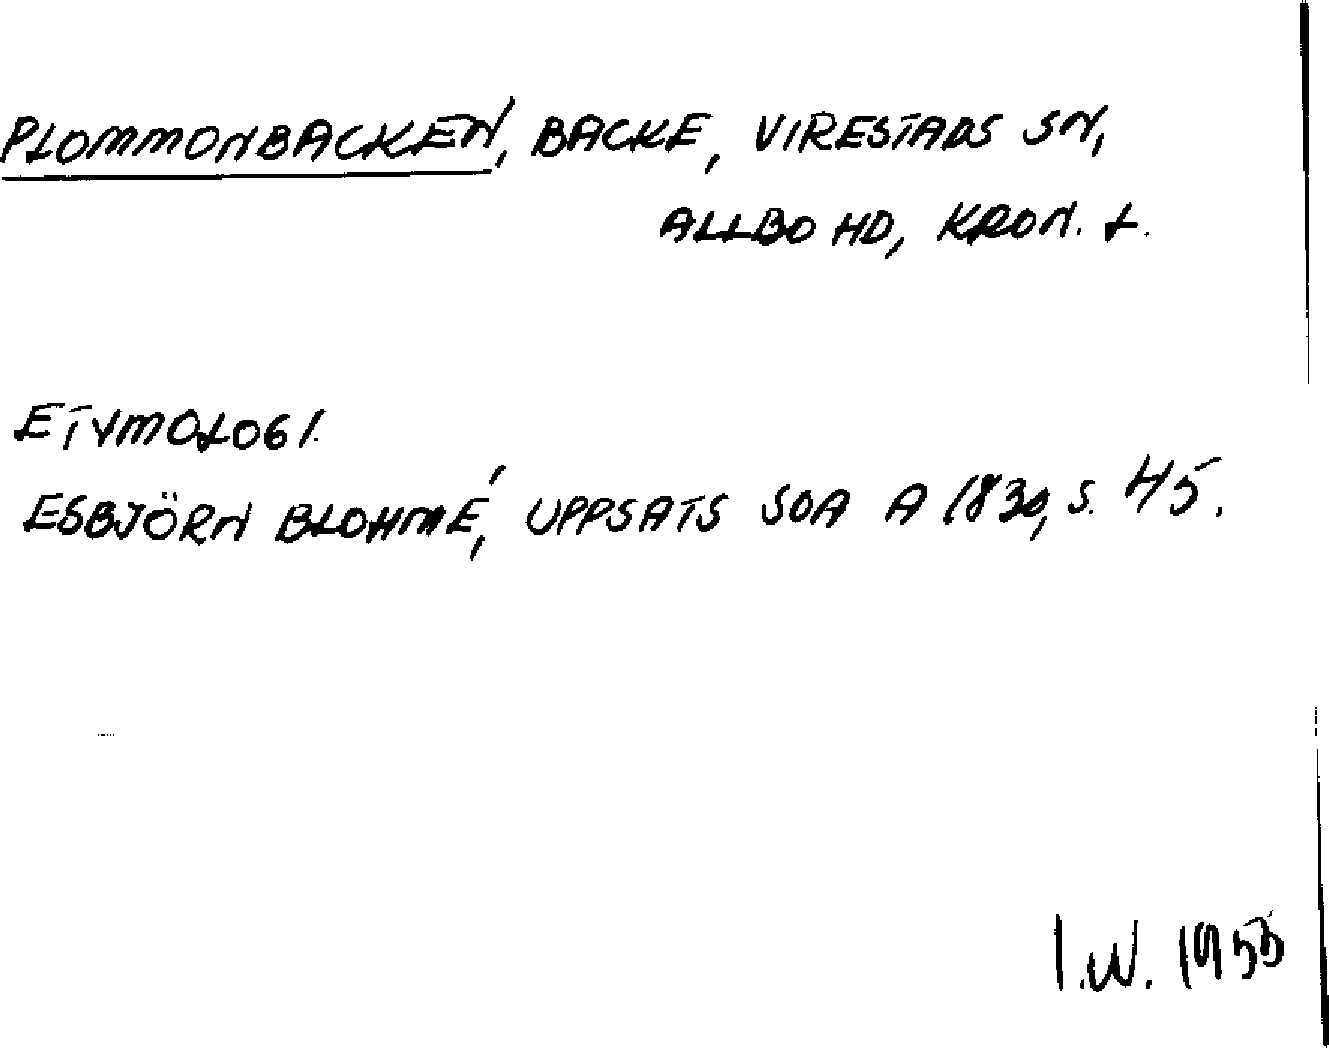 PLOMMONBACKEN, BACKE, VIRESTADS SN,
ALLBO HD, KRON. L.
ETYMOLOGI.
ESBJÖRN BLOHMÉ, UPPSATS SOA A 1830, S. 45.
I.W. 1955